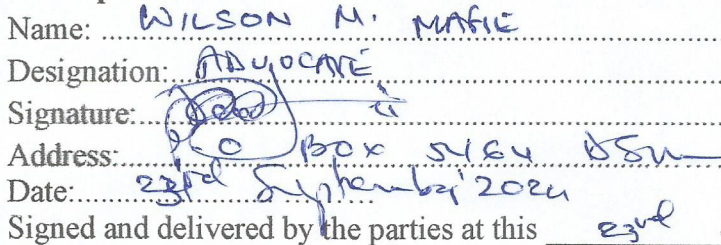 Name: WILSON M. MAFIE
Designation: ADVOCATE
Signature:
Address: P.O BOX 5464 DSM
Date: 23rd September 2024
Signed and delivered by the parties at this 23rd